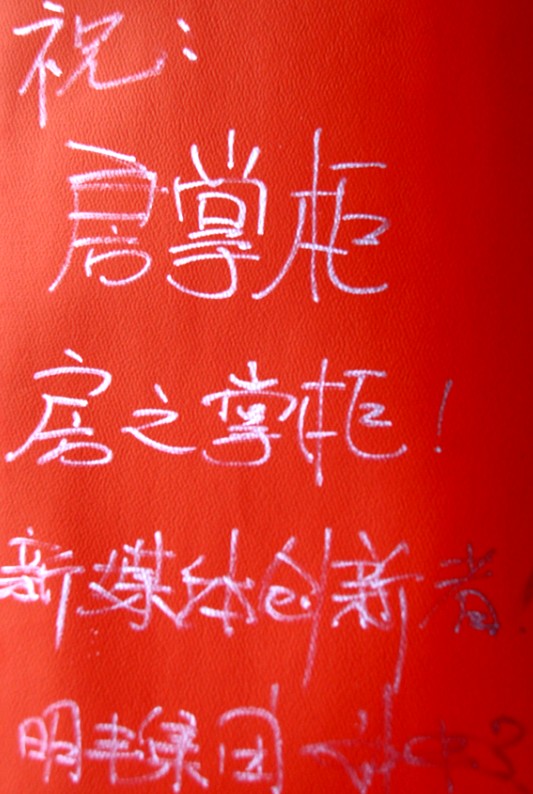 祝：
房掌柜
房之掌柜！
新媒体创新者！
明丰集团